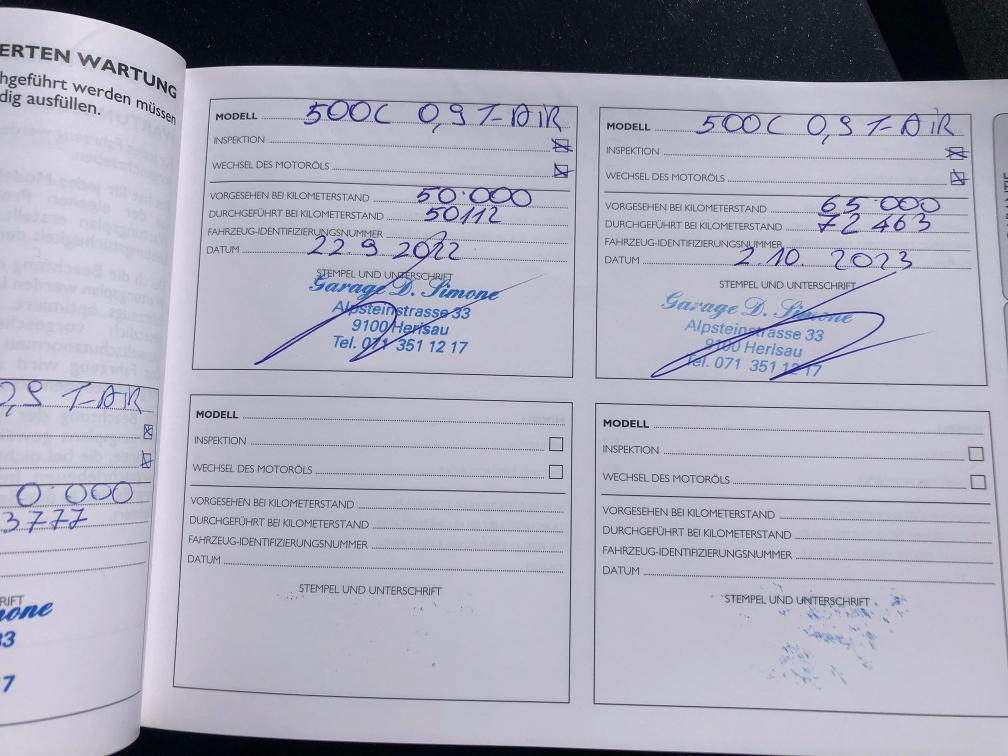 ERTEN WARTUNG
hgeführt werden müssen
dig ausfüllen.
0,9 T-AIR
0.000
3777
RIFT
mone
33
17
MODELL 500C 0,9 T-AIR
INSPEKTION
WECHSEL DES MOTORÖLS
VORGESEHEN BEI KILOMETERSTAND 50.000
DURCHGEFÜHRT BEI KILOMETERSTAND 50112
FAHRZEUG-IDENTIFIZIERUNGSNUMMER
DATUM 22.9 2022
STEMPEL UND UNTERSCHRIFT
Garage D. Simone
Alpsteinstrasse 33
9100 Herisau
Tel. 071 351 12 17
MODELL 500C 0,9 T-AIR
INSPEKTION
WECHSEL DES MOTORÖLS
VORGESEHEN BEI KILOMETERSTAND 65.000
DURCHGEFÜHRT BEI KILOMETERSTAND 72463
FAHRZEUG-IDENTIFIZIERUNGSNUMMER
DATUM 2.10. 2023
STEMPEL UND UNTERSCHRIFT
Garage D. Simone
Alpsteinstrasse 33
9100 Herisau
Tel. 071 351 12 17
MODELL
INSPEKTION
WECHSEL DES MOTORÖLS
VORGESEHEN BEI KILOMETERSTAND
DURCHGEFÜHRT BEI KILOMETERSTAND
FAHRZEUG-IDENTIFIZIERUNGSNUMMER
DATUM
STEMPEL UND UNTERSCHRIFT
MODELL
INSPEKTION
WECHSEL DES MOTORÖLS
VORGESEHEN BEI KILOMETERSTAND
DURCHGEFÜHRT BEI KILOMETERSTAND
FAHRZEUG-IDENTIFIZIERUNGSNUMMER
DATUM
STEMPEL UND UNTERSCHRIFT